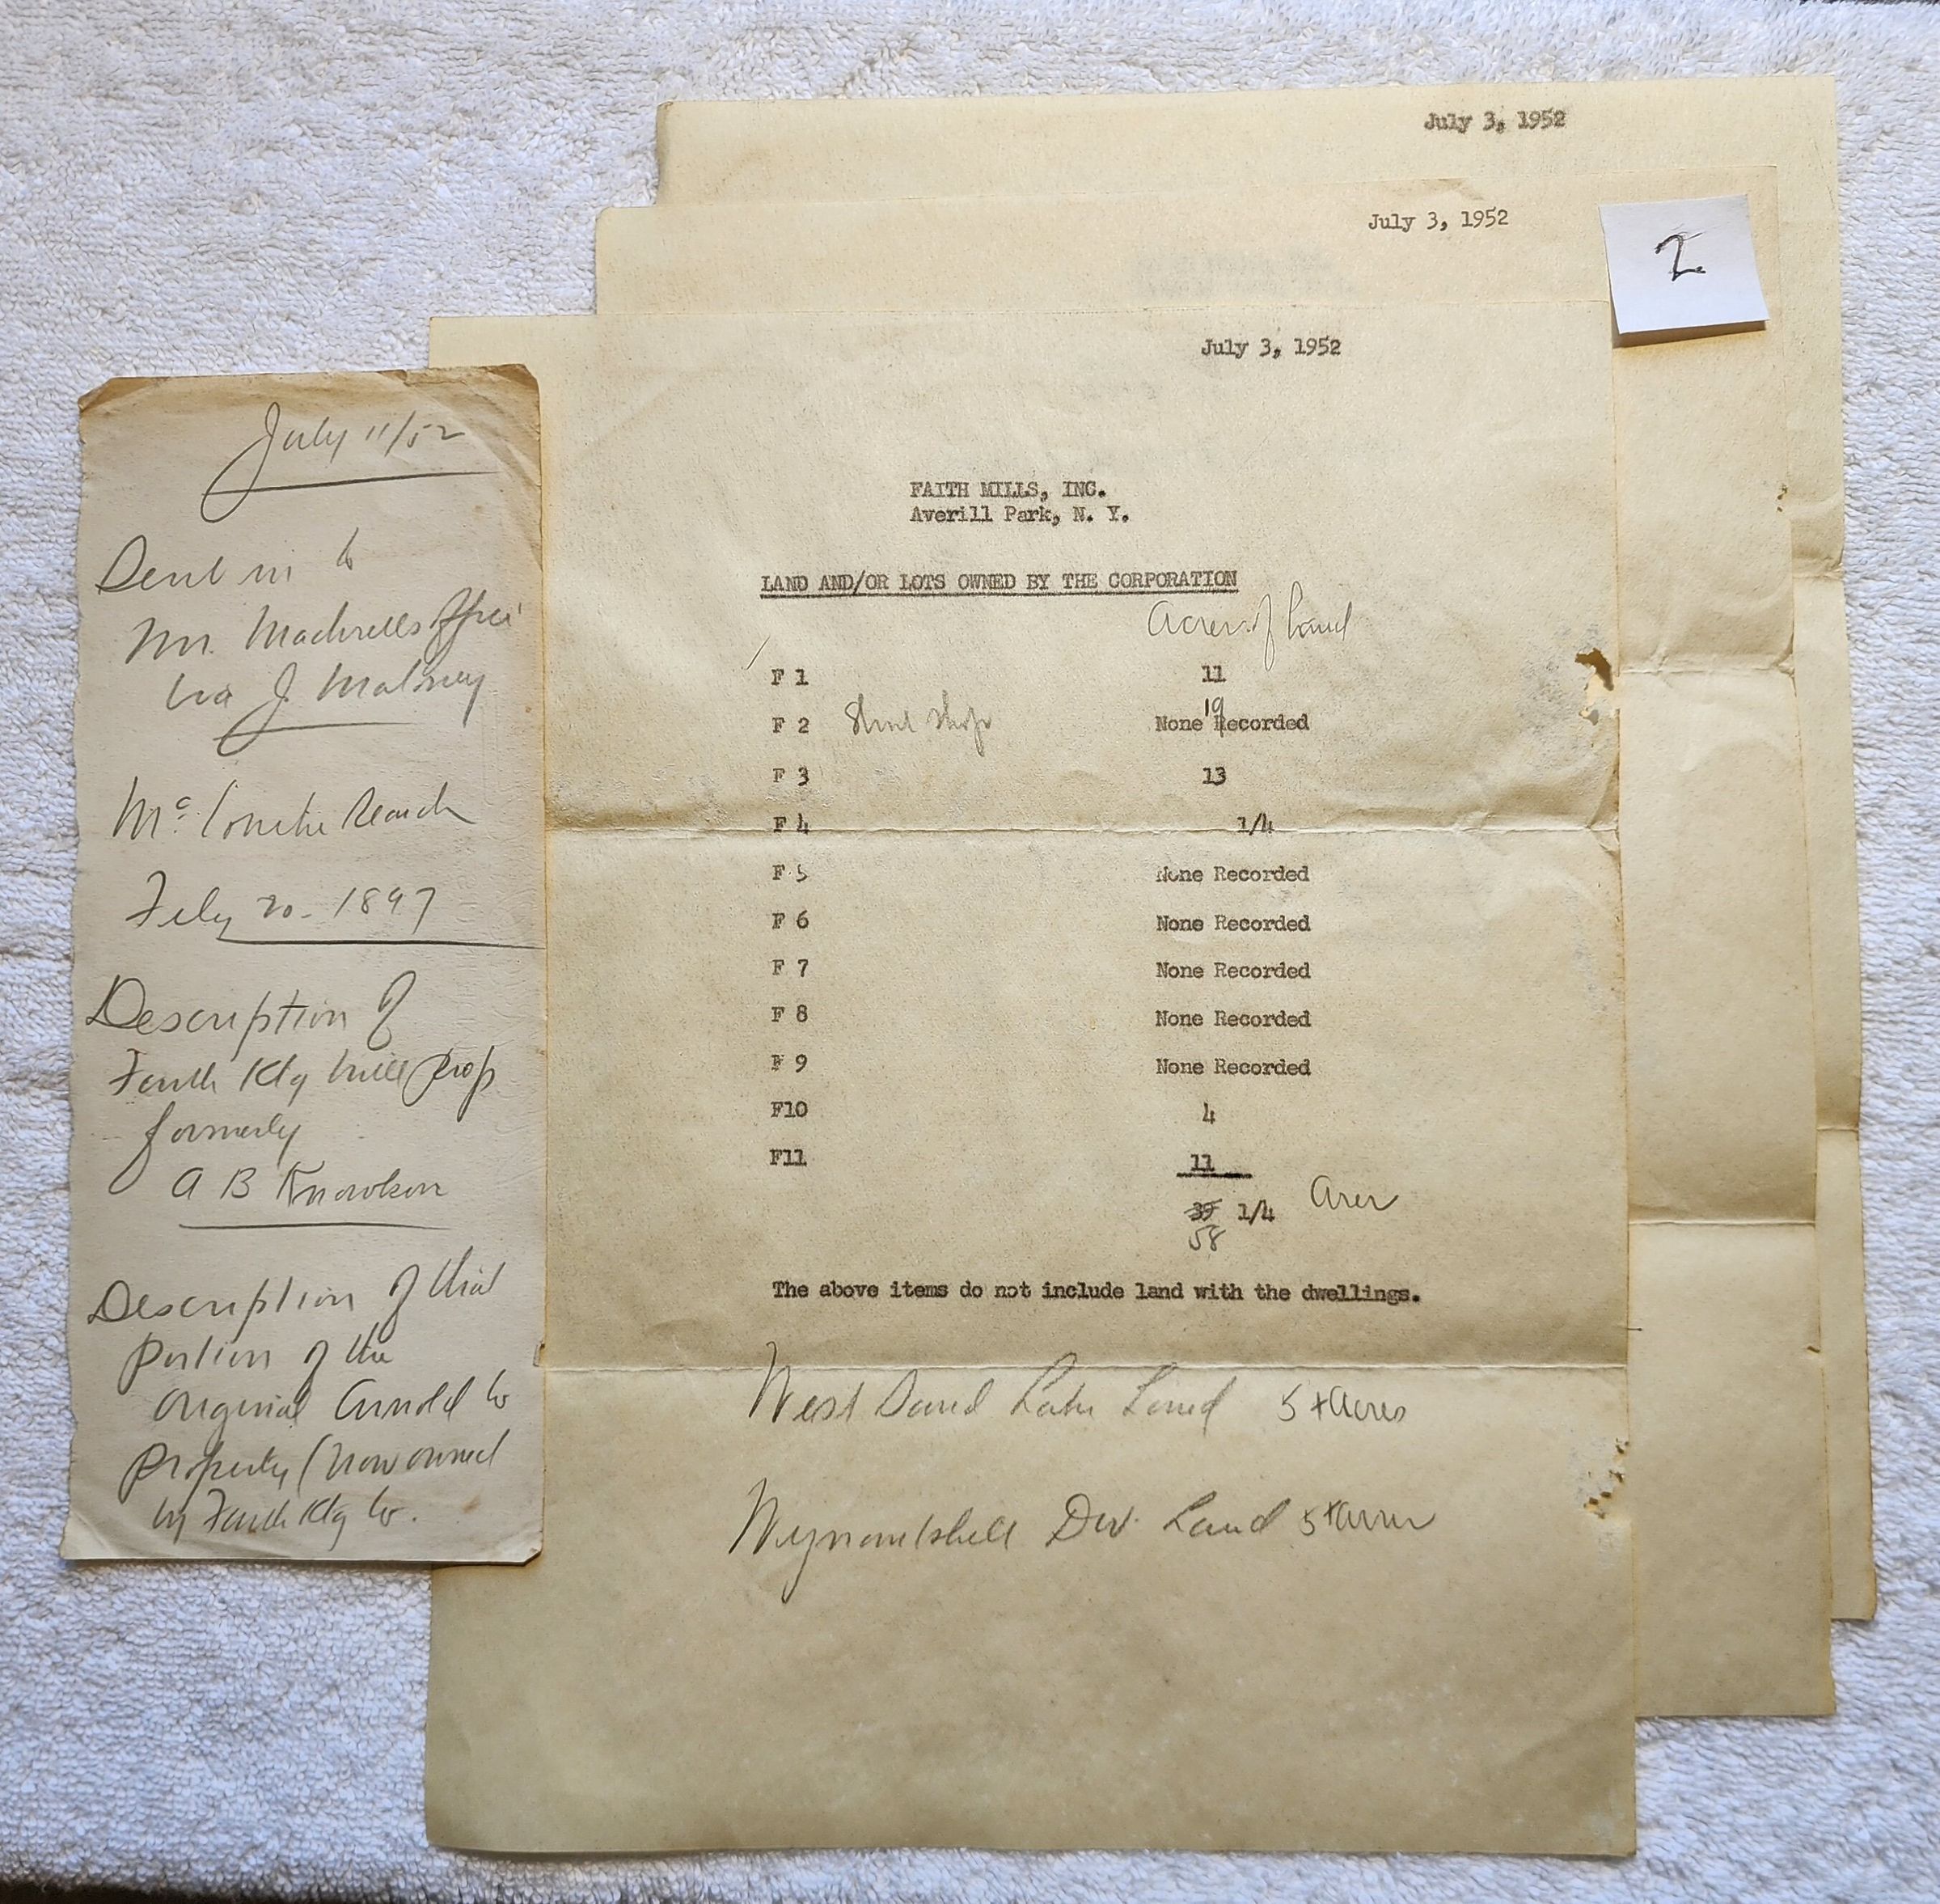 July 3, 1952
July 3, 1952
2
July 3, 1952
FAITH MILLS, INC.
Averill Park, N. Y.
LAND AND/OR LOTS OWNED BY THE CORPORATION
Acres of Land
F 1 11
F 2 Shop None Recorded 19
F 3 13
F 4 1/4
F 5 None Recorded
F 6 None Recorded
F 7 None Recorded
F 8 None Recorded
F 9 None Recorded
F10 4
F11 11
39 1/4 Acres
58
The above items do not include land with the dwellings.
West Sand Lake Land 5 + Acres
Wynantskill Div. Land 5 + Acres
July 11/52
Sent in to
Mr. Office
via J. Maloney
Mc. Search
July 20 - 1897
Description of
Faith Ktg Mill Prop
formerly
A B Knowlson
Description of that
portion of the
original Arnold Co
Property (now owned
by Faith Ktg Co.